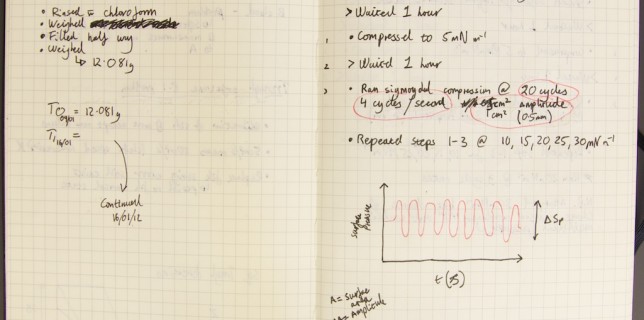 • Rinsed = chloroform
• Weighed
• Filled half way
• Weighed
↳ 12.081g
T0 09/01 = 12.081g
T1 16/01 =
Continued
16/01/12
> Waited 1 hour
1, • Compressed to 5mN m⁻¹
2, > Waited 1 hour
3, • Ran sigmoydal compression @ 20 cycles
4 cycles/second 1cm² amplitude
(0.5mm)
• Repeated steps 1-3 @ 10, 15, 20, 25, 30mN m⁻¹
Surface
Pressure
ΔSp
t (s)
A = Surface
area
Amplitude